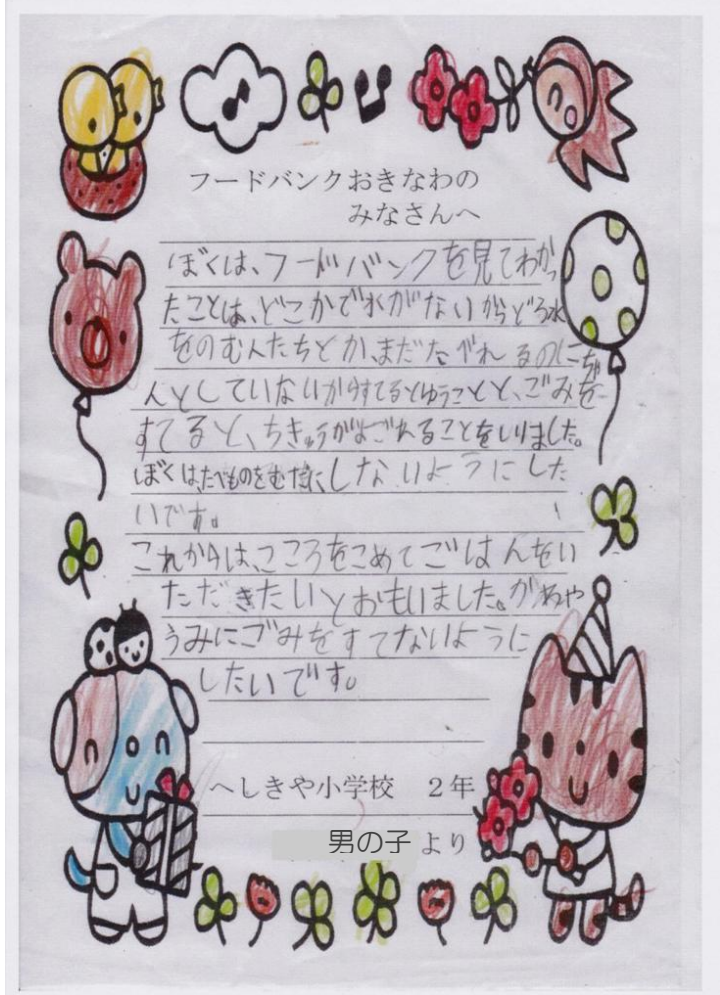 フードバンクおきなわの
みなさんへ
ぼくは、フードバンクを見てわかっ
たことは、どこかで水がないからどろ水
をのむ人たちとか、まだたべれるのにちゃ
んとしていないからすてるとゆうことと、ごみを
すてると、ちきゅうがよごれることをしりました。
ぼくは、たべものをむだにしないようにした
いです。
これからは、こころをこめてごはんをい
ただきたいとおもいました。かわや
うみにごみをすてないように
したいです。
へしきや小学校 2年
男の子 より